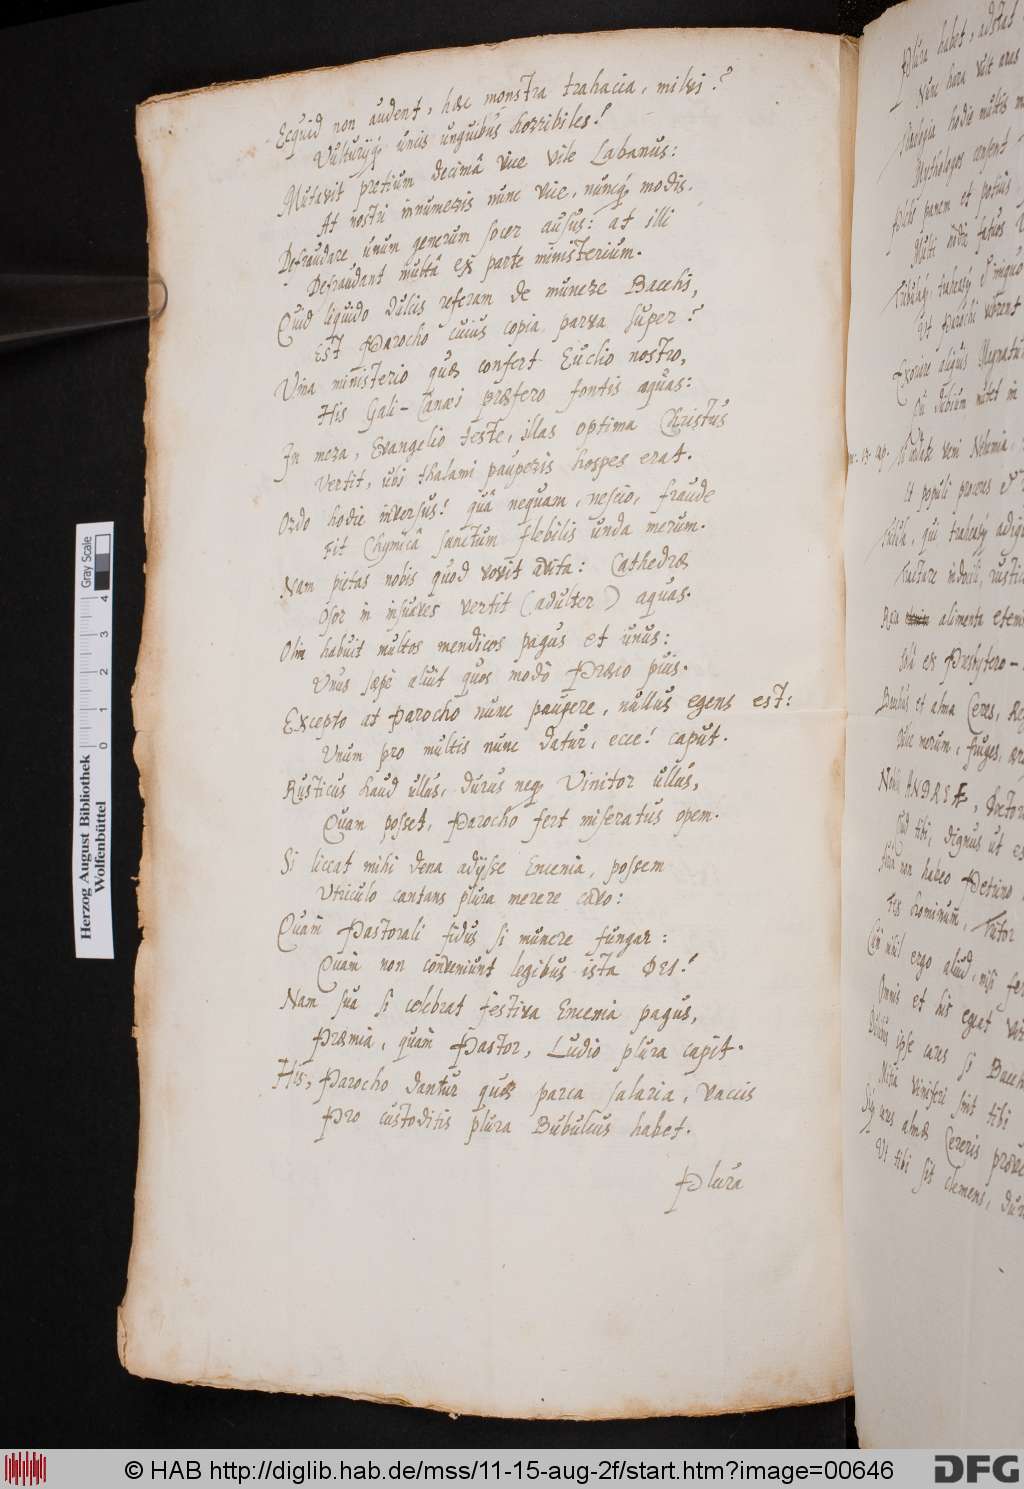 Ecquid non audent, hæc monstra trahacia, milvi?
Vulturijq; uncis unguibus horribiles!
Mutavit pretium decimâ vice vile Labanus:
At nostri innumeris nunc vice, nuncq; modis.
Defraudare unum generum socer ausus: at illi
Defraudant multâ ex parte ministerium.
Quid liquido dulcis referam de munere Bacchi,
Est Parocho cuius copia parva super?
Vina ministerio quæ confert Euclio nostro,
His Gali-Canæi præfero fontis aquas:
In mera, Evangelio teste, illas optima Christus
Vertit, ubi thalami pauperis hospes erat.
Ordo hodie inversus! quâ nequam, nescio, fraude
Fit Chymicâ sanctum flebilis unda merum.
Nam pietas nobis quod vovit avita: Cathedræ
Osor in insuaves vertit (adulter) aquas.
Olim habuit multos mendicos pagus et unus:
Unus sæpe aluit quos modò Præco pius.
Excepto at Parocho nunc paupere, nullus egens est:
Unum pro multis nunc datur, ecce! caput.
Rusticus haud ullus, durus neq; Vinitor ullus,
Quam posset, Parocho fert miseratus opem.
Si liceat mihi dena adijsse Encenia, possem
Utriculo cantans plura merere cavo:
Quàm Pastorali fidus si munere fungar:
Quàm non conveniunt legibus ista DEI!
Nam sua si celebrat festiva Encenia pagus,
Præmia, quàm Pastor, Ludio plura capit.
His, Parocho dantur quæ parca salaria, vaccis
Pro custoditis plura Bubulcus habet.
Plura
Plura habet, adstat
Nunc hara vult aras
hodie multis
Mythologos censent
Plebs panem et potus
Multi hodie fatuos
Ut Parochi vivent
Exorire aliquis Magnatu
Et populi proceres et
qui traheatq; adigu
Tractare indocili, rustic
alimenta
Sola ex Presbytero-
Bacchus et alma Ceres,
Dulce merum, fruges,
Nobis ANDREÆ, Doctor
Sed tibi, dignus ut es
non habeo
Fes hominum, Tutor
Cùm nihil ergo aliud, nisi
Omnis et his egeat
ipse cares si Bacch
Vitifera sint tibi
Sin vis almæ Cereris
Ut tibi sit clemens,
Herzog August Bibliothek
Wolfenbüttel
0 1 2 3 4
Gray Scale
© HAB http://diglib.hab.de/mss/11-15-aug-2f/start.htm?image=00646
DFG